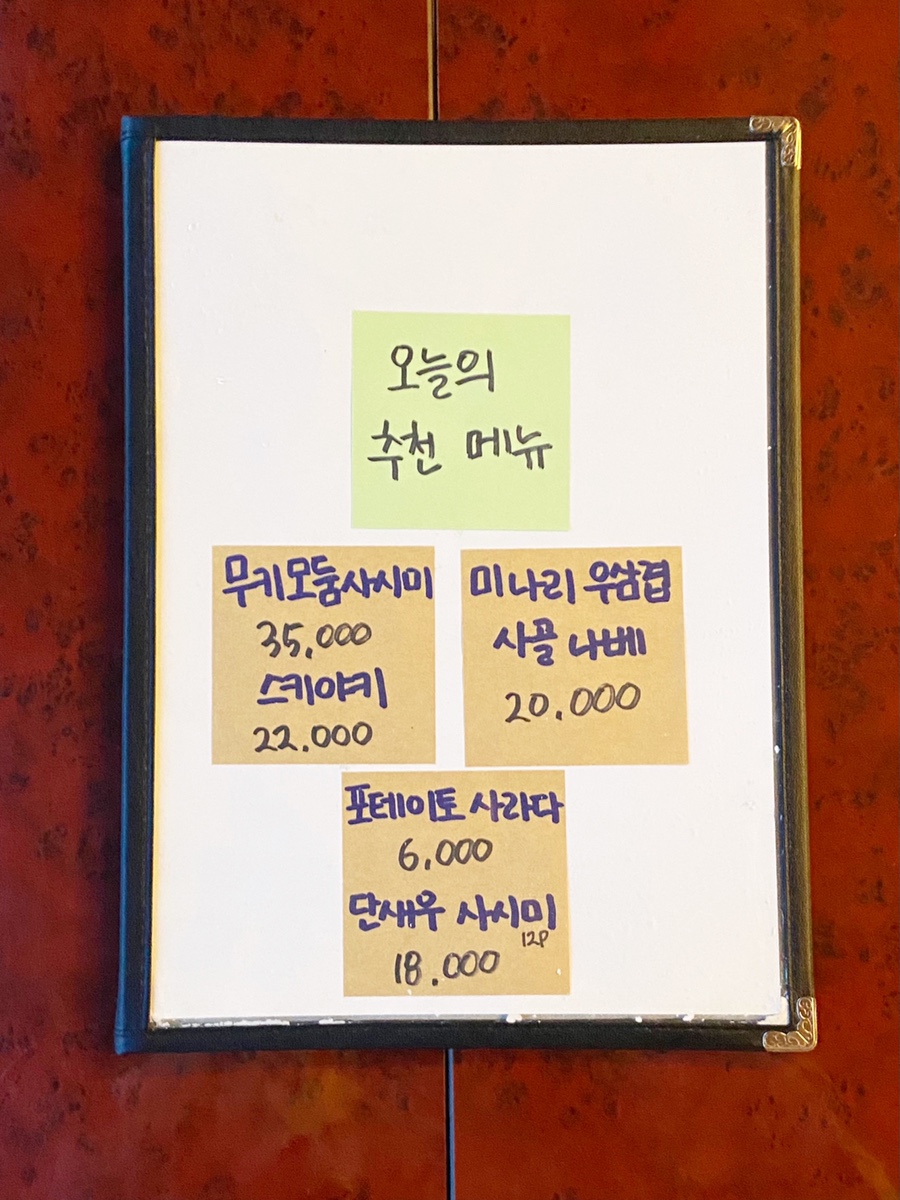 오늘의
추천 메뉴
무키모둠사시미
35,000
스키야키
22.000
미나리 우삼겹
사골 나베
20.000
포테이토 사라다
6,000
단새우 사시미
12P
18.000